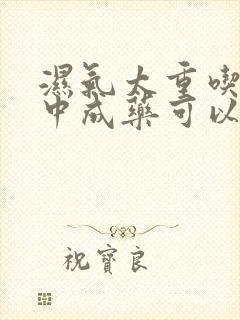 濕氣太重喫
中成藥可以
祝寶良